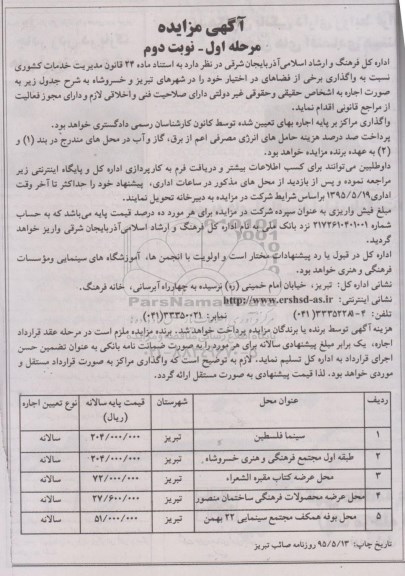 آگهی مزایده
مرحله اول - نوبت دوم
اداره کل فرهنگ و ارشاد اسلامی آذربایجان شرقی در نظر دارد به استناد ماده ۲۴ قانون مدیریت خدمات کشوری
نسبت به واگذاری برخی از فضاهای در اختیار خود را در شهرهای تبریز و خسروشاه به شرح جدول زیر به
صورت اجاره به اشخاص حقیقی وحقوقی غیر دولتی دارای صلاحیت فنی و اخلاقی لازم و دارای مجوز فعالیت
از مراجع قانونی اقدام نماید.
واگذاری مراکز بر پایه اجاره بهای تعیین شده توسط کانون کارشناسان رسمی دادگستری خواهد بود.
پرداخت صد درصد هزینه حامل های انرژی مصرفی اعم از برق، گاز و آب در محل های مندرج در بند (۱) و
(۲) به عهده برنده مزایده خواهد بود.
داوطلبین می‌توانند برای کسب اطلاعات بیشتر و دریافت فرم به کارپردازی اداره کل و پایگاه اینترنتی زیر
مراجعه نموده و پس از بازدید از محل های مذکور در ساعات اداری، پیشنهاد خود را حداکثر تا آخر وقت
اداری ۱۳۹۵/۵/۱۹ براساس شرایط شرکت در مزایده به دبیرخانه تحویل نمایند.
مبلغ فیش واریزی به عنوان سپرده شرکت در مزایده برای هر مورد ده درصد قیمت پایه می‌باشد که به حساب
شماره ۲۱۷۲۶۱۰۴۰۱۰۰۱ نزد بانک ملی به نام اداره کل فرهنگ و ارشاد اسلامی آذربایجان شرقی واریز خواهد
گردید.
اداره کل در قبول یا رد پیشنهادات مختار است و اولویت با انجمن ها، آموزشگاه های سینمایی ومؤسسات
فرهنگی و هنری خواهد بود.
نشانی اداره کل: تبریز، خیابان امام خمینی (ره) نرسیده به چهارراه آبرسانی، خانه فرهنگ.
نشانی اینترنتی: http://www.ershsd-as.ir
تلفن: ۴-۳۳۳۵۲۲۸۰ (۰۴۱) نمابر: ۳۳۳۵۰۰۲۱ (۰۴۱)
هزینه آگهی توسط برنده یا برندگان مزایده پرداخت خواهد شد. برنده مزایده ملزم است در مرحله عقد قرارداد
اجاره، یک برابر مبلغ پیشنهادی سالانه برای هر مورد را به صورت ضمانت نامه بانکی به عنوان تضمین حسن
اجرای قرارداد به اداره کل تسلیم نماید. لازم به توضیح است که واگذاری مراکز به صورت قرارداد مستقل و
موردی خواهد بود. لذا قیمت پیشنهادی به صورت مستقل ارائه گردد.
ردیف عنوان محل شهرستان قیمت پایه سالانه (ریال) نوع تعیین اجاره
۱ سینما فلسطین تبریز ۲۰۴/۰۰۰/۰۰۰ سالانه
۲ طبقه اول مجتمع فرهنگی و هنری خسروشاه تبریز ۲۰۴/۰۰۰/۰۰۰ سالانه
۳ محل عرضه کتاب مقبره الشعراء تبریز ۷۲/۰۰۰/۰۰۰ سالانه
۴ محل عرضه محصولات فرهنگی ساختمان منصور تبریز ۲۷/۶۰۰/۰۰۰ سالانه
۵ محل بوفه همکف مجتمع سینمایی ۲۲ بهمن تبریز ۵۱/۰۰۰/۰۰۰ سالانه
تاریخ چاپ: ۹۵/۵/۱۳ روزنامه صائب تبریز